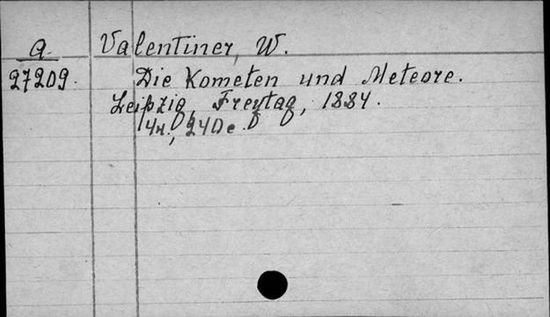 a.
Valentiner, W.
27209.
Die Kometen und Meteore.
Leipzig, Freytag, 1884.
240